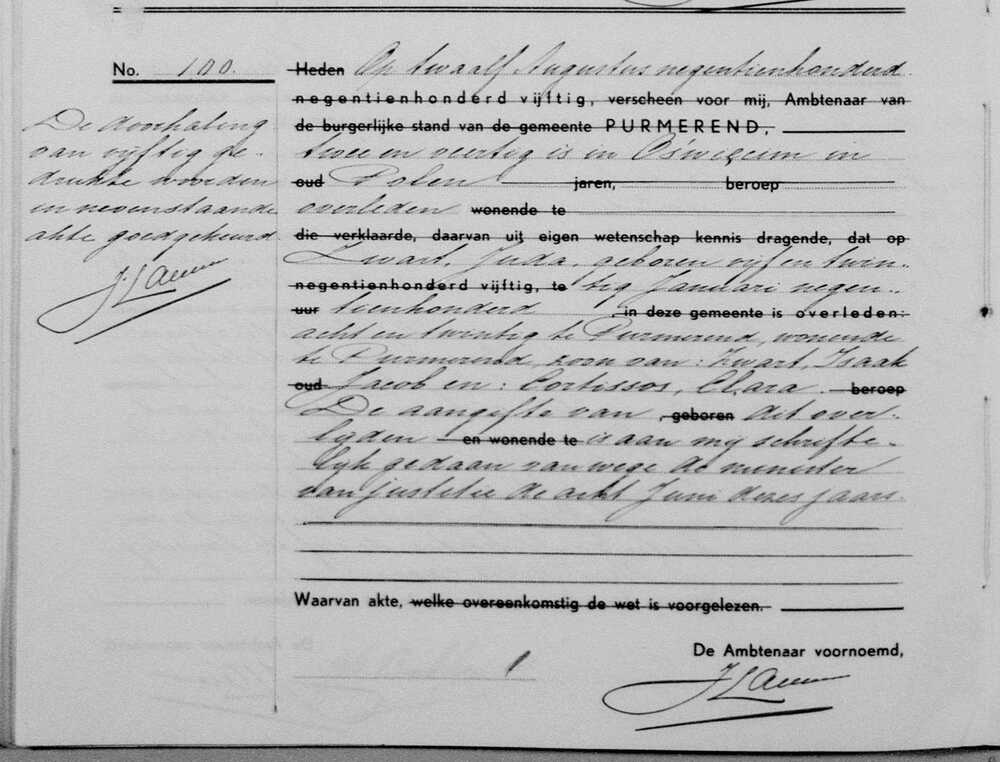 No. 100.
De doorhaling
van vijftig ge-
drukte woorden
in nevenstaande
akte goedgekeurd
Heden Op twaalf Augustus negentienhonderd
negentienhonderd vijftig, verscheen voor mij, Ambtenaar van
de burgerlijke stand van de gemeente PURMEREND,
twee en veertig is in Oświęcim in
oud Polen jaren, beroep
overleden wonende te
die verklaarde, daarvan uit eigen wetenschap kennis dragende, dat op
Zwart, Juda, geboren vijf en twin-
negentienhonderd vijftig, te tig Januari negen-
uur tienhonderd , in deze gemeente is overleden:
acht en twintig te Purmerend, wonende
te Purmerend, zoon van: Zwart, Isaak
oud Jacob en: Cortissos, Clara. beroep
De aangifte van , geboren dit over-
lijden en wonende te is aan mij schrifte-
lijk gedaan vanwege de minister
van justitie de acht Juni dezes jaars.
Waarvan akte, welke overeenkomstig de wet is voorgelezen.
De Ambtenaar voornoemd,